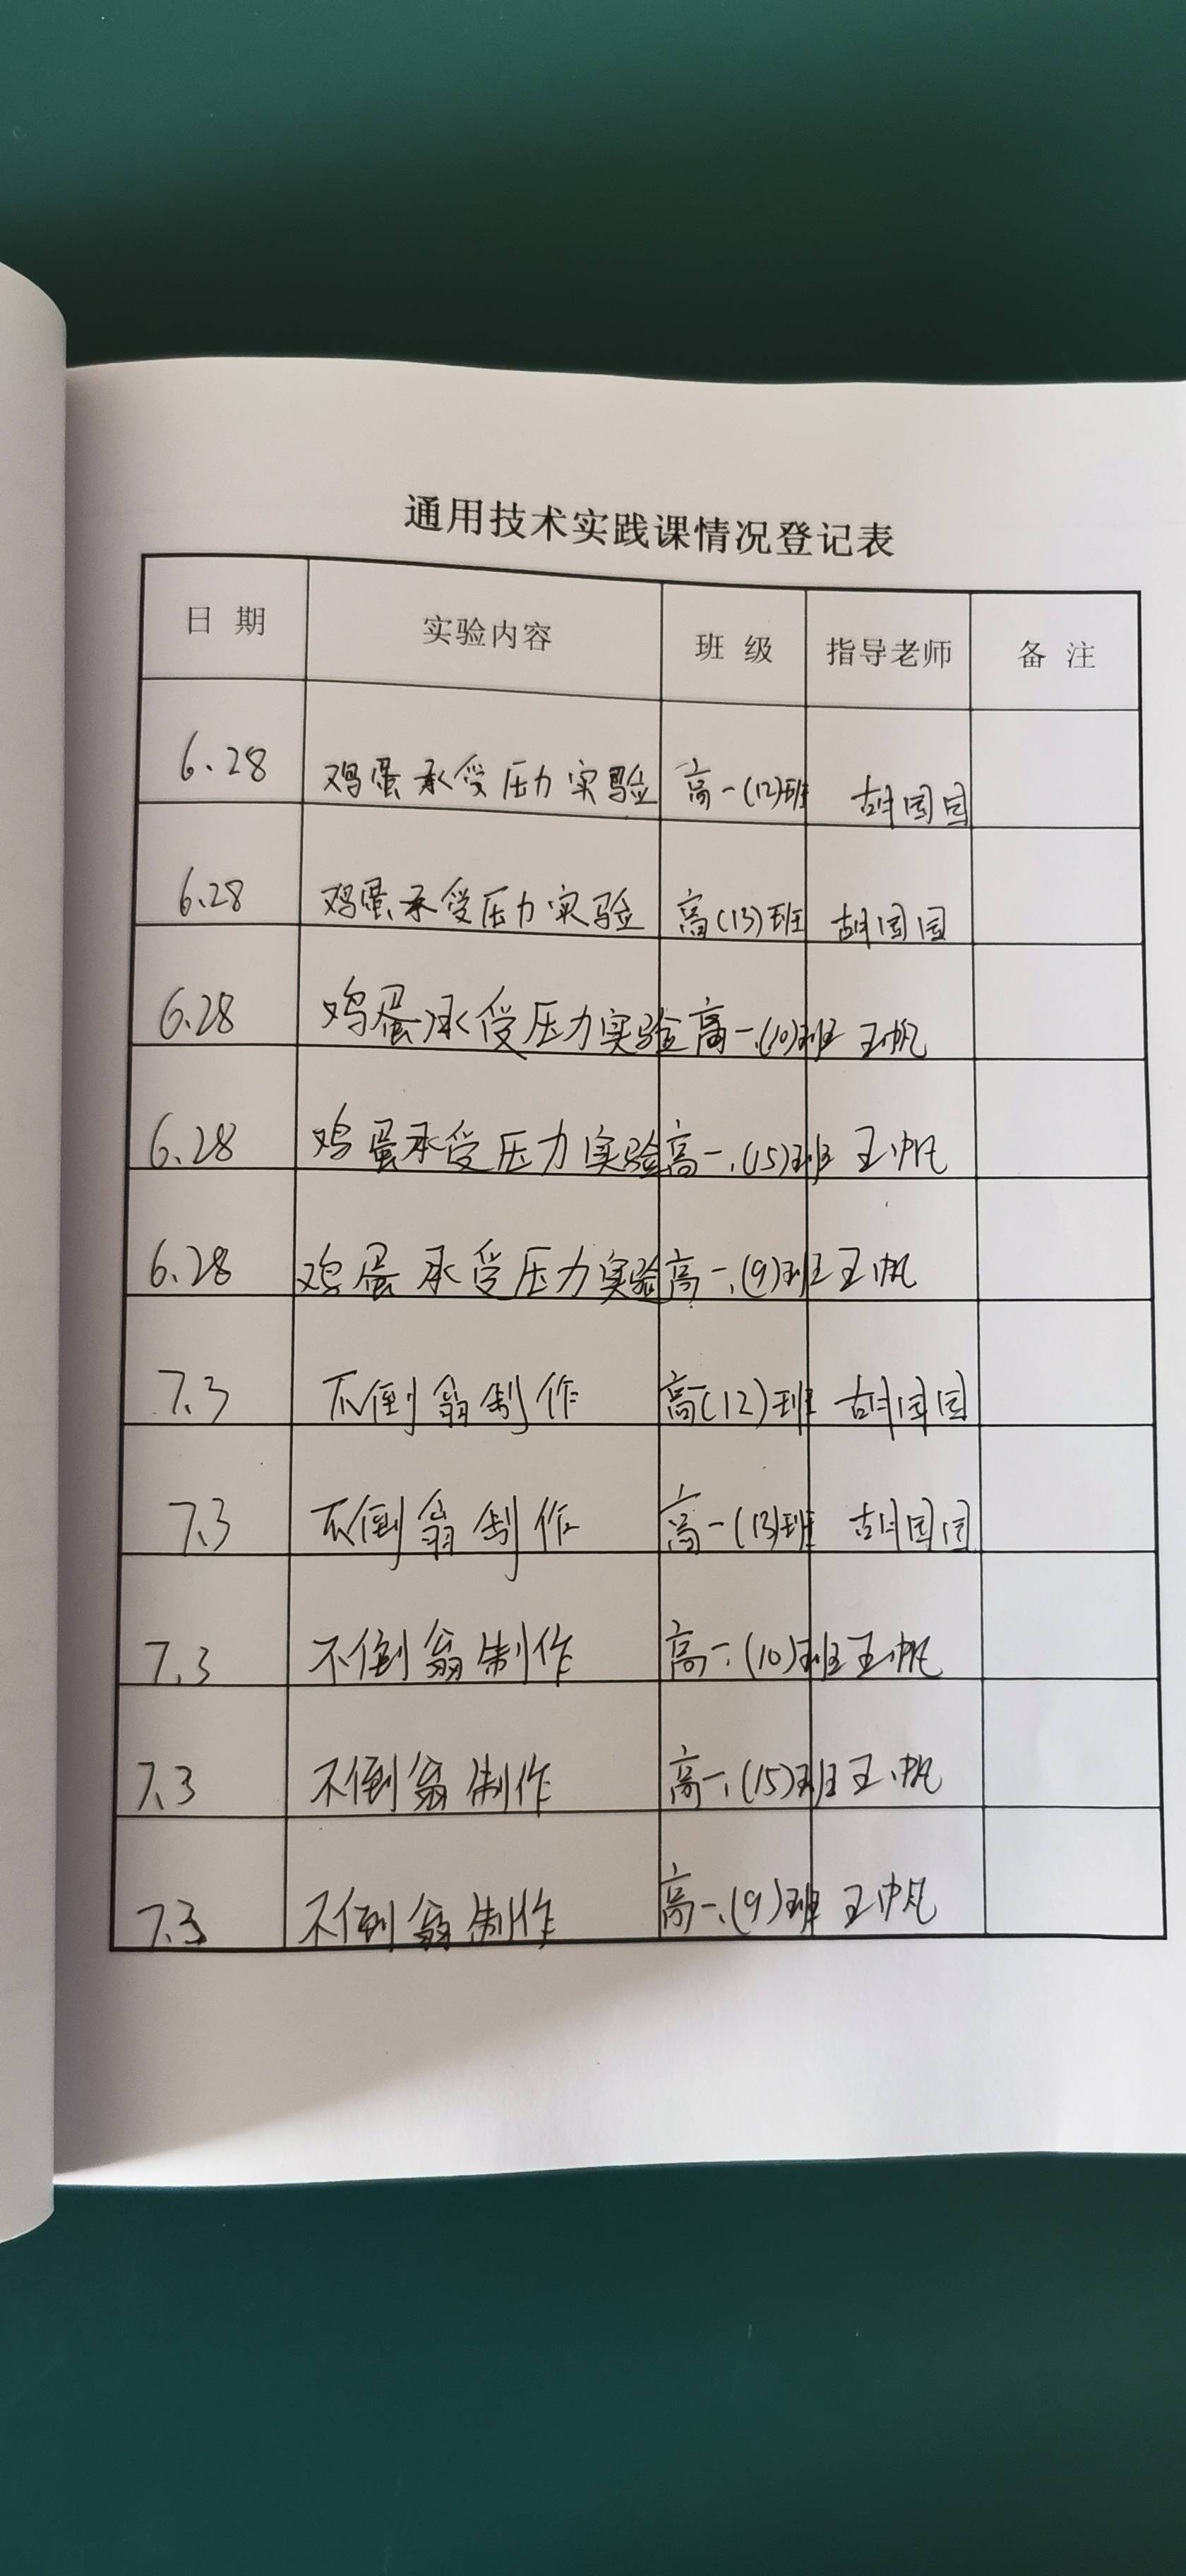 通用技术实践课情况登记表
日期 实验内容 班级 指导老师 备注
6.28 鸡蛋承受压力实验 高一(12)班 胡园园
6.28 鸡蛋承受压力实验 高(13)班 胡园园
6.28 鸡蛋承受压力实验 高一.(10)班 王帆
6.28 鸡蛋承受压力实验 高一.(15)班 王帆
6.28 鸡蛋承受压力实验 高一.(9)班 王帆
7.3 不倒翁制作 高(12)班 胡园园
7.3 不倒翁制作 高一(13)班 胡园园
7.3 不倒翁制作 高一.(10)班 王帆
7.3 不倒翁制作 高一.(15)班 王帆
7.3 不倒翁制作 高一.(9)班 王帆